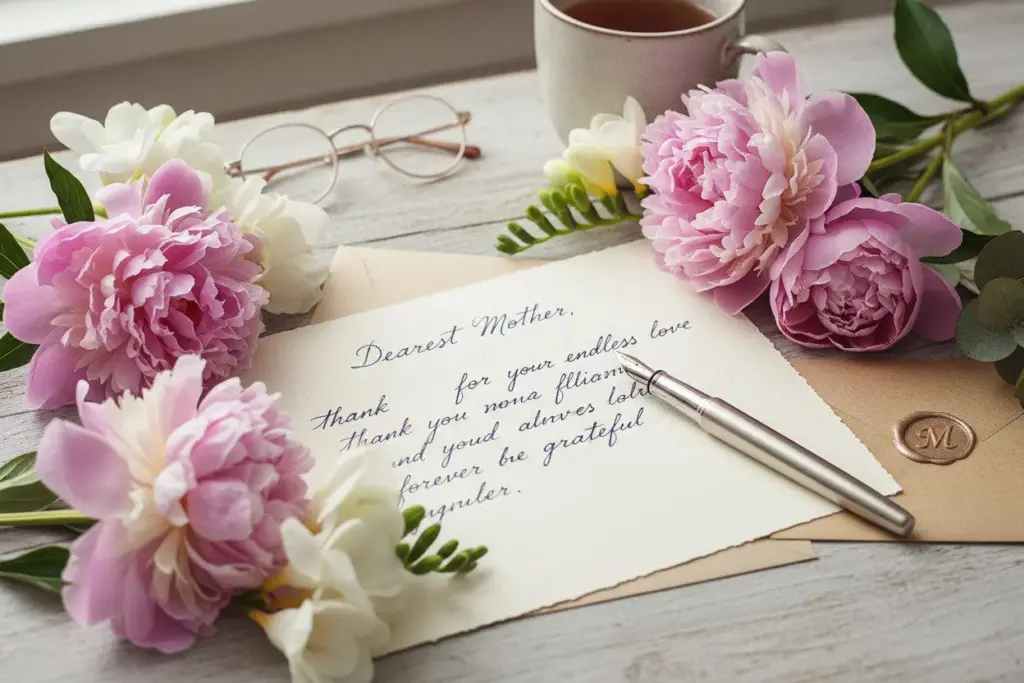 Dearest Mother,
thank for your endless love
thank you nona flliam
and youd alnves lold
forever be grateful
M